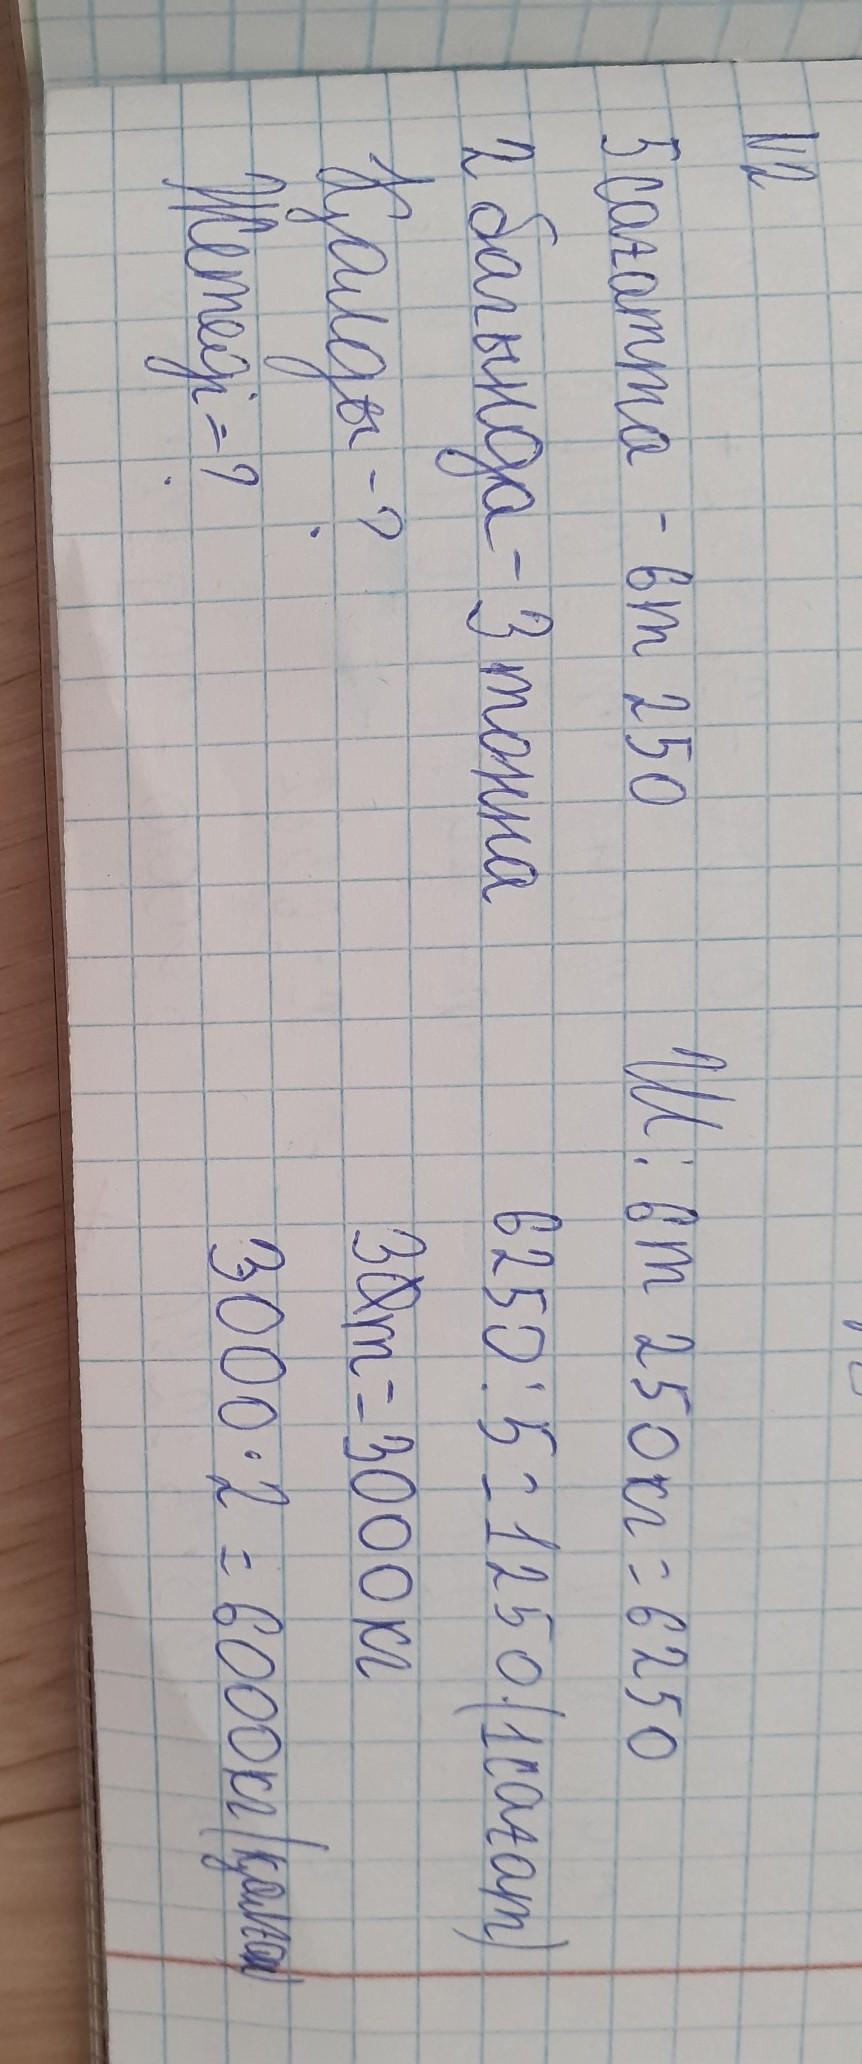 №2
5 сағатта - 6т 250
2 бағында - 3 тонна
Қалды - ?
Жетеді = ?
Ш: 6т 250кг = 6250
6250 : 5 = 1250 (1сағат)
3т = 3000 кг
3000 · 2 = 6000кг (қалған)